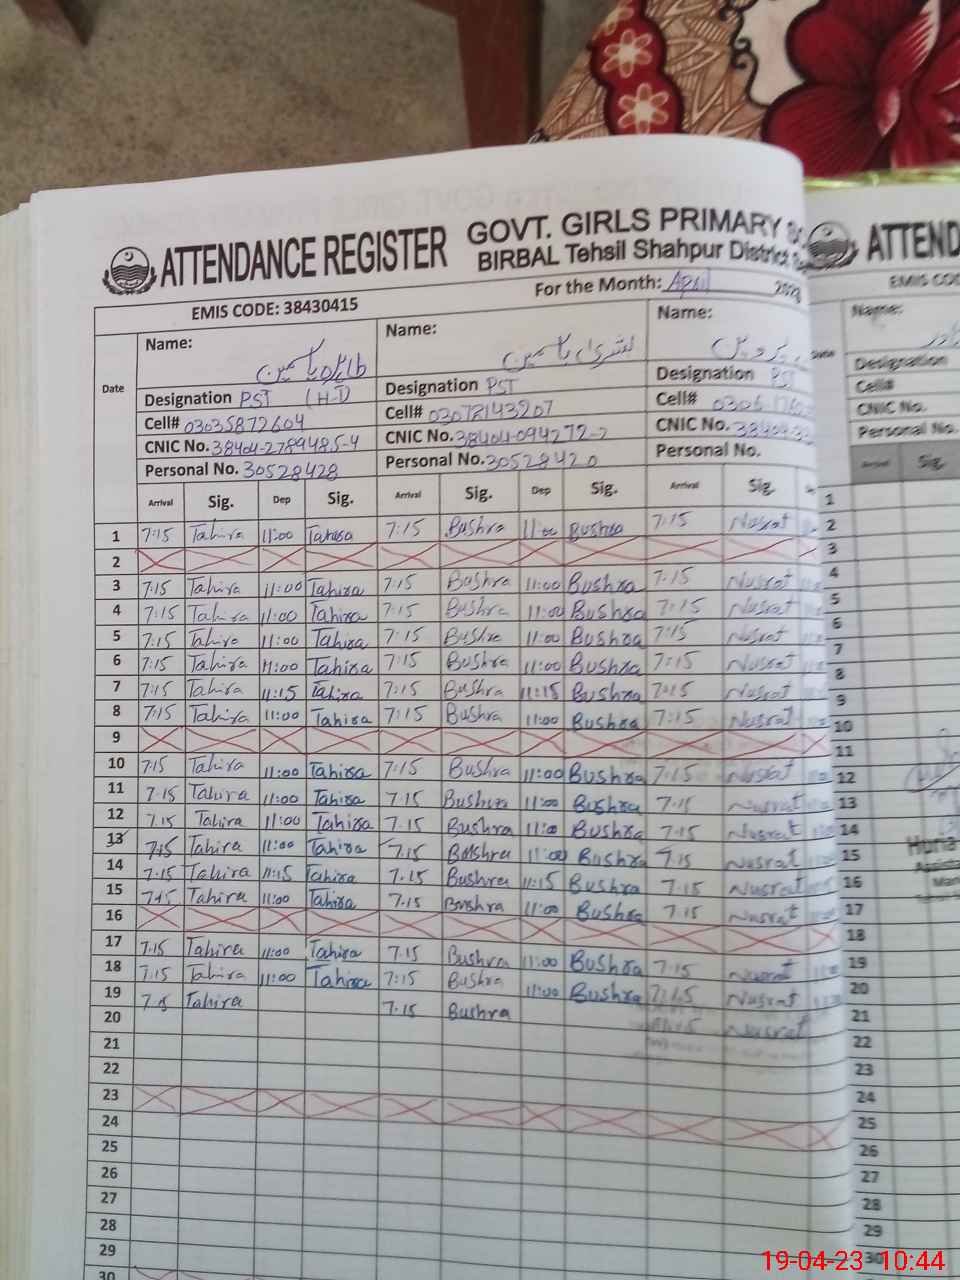 ATTENDANCE REGISTER GOVT. GIRLS PRIMARY
BIRBAL Tehsil Shahpur District
EMIS CODE: 38430415 For the Month: April
Name: Name: Name:
طاہرہ یاسمین بشریٰ یاسمین
Date
Designation PST (H-T) Designation PST Designation PST
Cell# 03035872604 Cell# 03078143207 Cell# 0306
CNIC No. 38404-2789485-4 CNIC No. 38404-094272-2 CNIC No. 38404
Personal No. 30528428 Personal No. 30528420 Personal No.
Arrival Sig. Dep Sig. Arrival Sig. Dep Sig. Arrival Sig.
1 7:15 Tahira 11:00 Tahira 7:15 Bushra 11:00 Bushra 7:15 Nusrat
2
3 7:15 Tahira 11:00 Tahira 7:15 Bushra 11:00 Bushra 7:15 Nusrat
4 7:15 Tahira 11:00 Tahira 7:15 Bushra 11:00 Bushra 7:15 Nusrat
5 7:15 Tahira 11:00 Tahira 7:15 Bushra 11:00 Bushra 7:15 Nusrat
6 7:15 Tahira 11:00 Tahira 7:15 Bushra 11:00 Bushra 7:15 Nusrat
7 7:15 Tahira 11:15 Tahira 7:15 Bushra 11:15 Bushra 7:15 Nusrat
8 7:15 Tahira 11:00 Tahira 7:15 Bushra 11:00 Bushra 7:15 Nusrat
9
10 7:15 Tahira 11:00 Tahira 7:15 Bushra 11:00 Bushra 7:15 Nusrat
11 7.15 Tahira 11:00 Tahira 7.15 Bushra 11:00 Bushra 7.15 Nusrat
12 7.15 Tahira 11:00 Tahira 7.15 Bushra 11:00 Bushra 7.15 Nusrat
13 7.15 Tahira 11:00 Tahira 7.15 Bushra 11:00 Bushra 7.15 Nusrat
14 7.15 Tahira 11:15 Tahira 7.15 Bushra 11:15 Bushra 7.15 Nusrat
15 7.15 Tahira 11:00 Tahira 7.15 Bushra 11:00 Bushra 7.15 Nusrat
16
17 7.15 Tahira 11:00 Tahira 7.15 Bushra 11:00 Bushra 7.15 Nusrat
18 7.15 Tahira 11:00 Tahira 7:15 Bushra 11:00 Bushra 7:15 Nusrat
19 Tahira 7.15 Bushra Nusrat
20
21
22
23
24
25
26
27
28
29
30
ATTEND
EMIS CO
Name:
Designation
Cell#
CNIC No.
Personal No.
Arrival Sig.
1
2
3
4
5
6
7
8
9
10
11
12
13
14
15
16
17
18
19
20
21
22
23
24
25
26
27
28
29
30
19-04-23 10:44